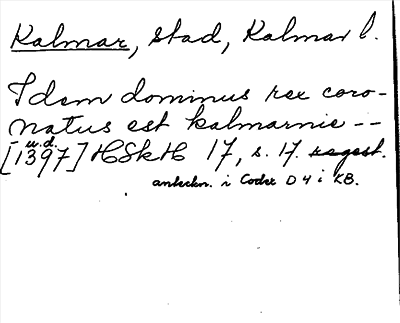 Kalmar, stad, Kalmar l.
Idem dominus rex coro-
natus est kalmarnie --
[u.d. 1397] HSkH 17, s. 17. regest.
anteckn. i Codex D 4 i KB.